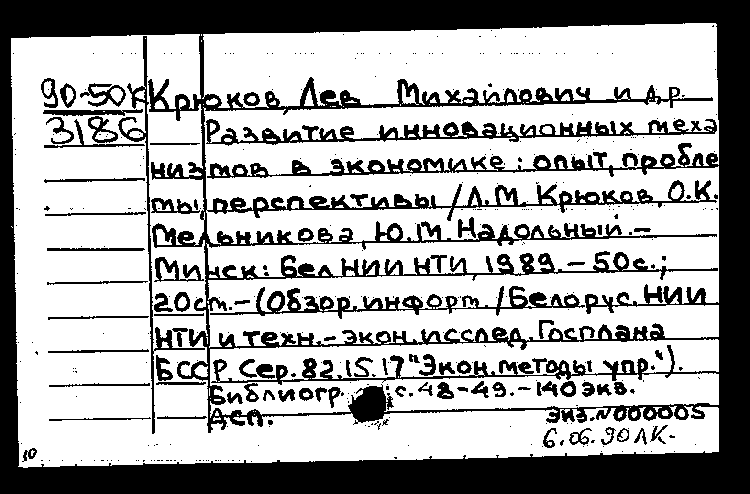 90-50К Крюков, Лев Михайлович и др.
3186 Развитие инновационных меха
низмов в экономике: опыт, пробле
мы, перспективы / Л.М. Крюков, О.К.
Мельникова, Ю.М. Надольный.-
Минск: БелНИИНТИ, 1989.-50с.;
20см.-(Обзор.информ. / Белорус.НИИ
НТИ и техн.-экон.исслед.Госплана
БССР. Сер.82.15.17 "Экон.методы упр.").
Библиогр. с.48-49.-140экз.
ДСП.
экз.N000005
6.06.90ЛК-
10